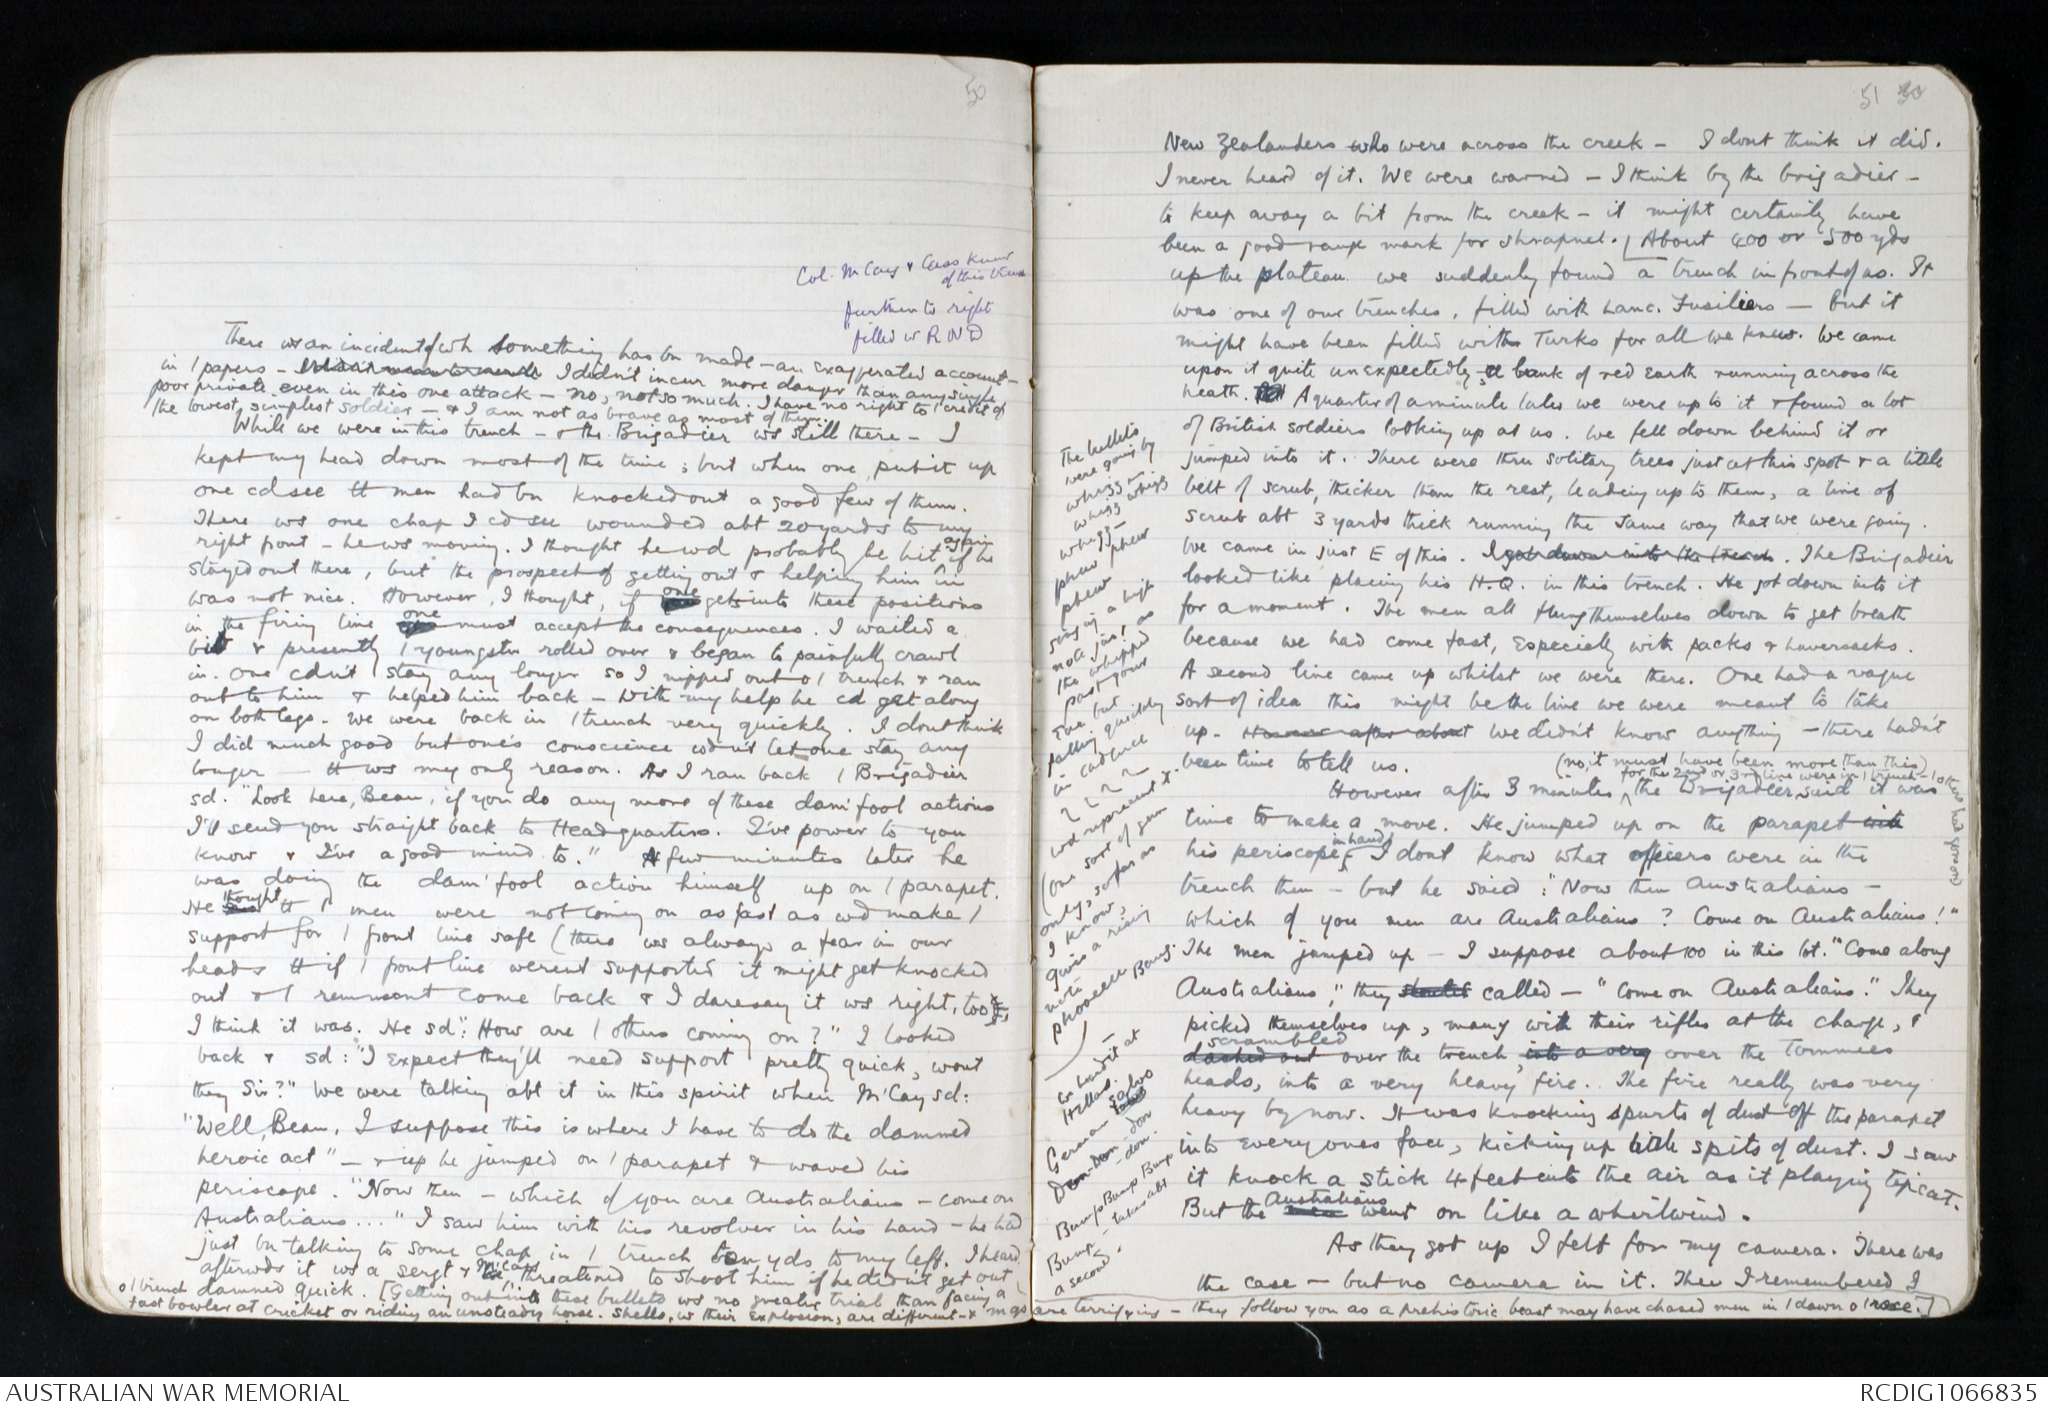 50
Col. McCay & Cass knew
of this trench
further to right
filled w R N D
There ws an incident of wh something has bn made - an exaggerated account -
in / papers - I didn't incur more danger than any single
poor private even in this one attack - no, not so much. I have no right to / credit of
the lowest, simplest soldier - & I am not as brave as most of them.
While we were in this trench - & the Brigadier ws still there - I
kept my head down most of the time; but when one put it up
one cd see tt men had bn knocked out a good few of them.
There ws one chap I cd see wounded abt 20 yards to my
right front - he ws moving. I thought he wd probably be hit again if he
stayed out there, but the prospect of getting out & helping him in
was not nice. However, I thought, if one gets into these positions
in the firing line one must accept the consequences. I waited a
bit & presently / youngster rolled over & began to painfully crawl
in. One cdn't stay any longer so I nipped out o / trench & ran
out to him & helped him back - with my help he cd get along
on both legs. We were back in / trench very quickly. I dont think
I did much good but one's conscience wdn't let one stay any
longer - tt ws my only reason. As I ran back / Brigadier
sd. "Look here, Bean, if you do any more of these dam' fool actions
I'll send you straight back to Headquarters. I've power to you
know & I've a good mind to." A few minutes later he
was doing the dam' fool action himself up on / parapet.
He thought tt / men were not coming on as fast as wd make /
support for / front line safe (there ws always a fear in our
heads tt if / front line werent supported it might get knocked
out & / remnant come back & I daresay it ws right, too;
I think it was. He sd": How are / others coming on?" I looked
back & sd: "I expect they'll need support pretty quick, wont
they Sir?" We were talking abt it in this spirit when McCay sd:
"Well, Bean, I suppose this is where I have to do the damned
heroic act" - & up he jumped on / parapet & waved his
periscope. "Now then - which of you are Australians - come on
Australians..." I saw him with his revolver in his hand - he had
just bn talking to some chap in / trench ten yds to my left. I heard
afterwds it ws a sergt & McCay threatened to shoot him if he didn't get out
o / trench damned quick. [Getting out into these bullets ws no greater trial than facing a
fast bowler at cricket or riding an unsteady horse. Shells, w their explosion, are different - & mgs are terrifying - they follow you as a prehistoric beast may have chased men in / dawn o / race.]
51 30
New Zealanders who were across the creek - I dont think it did.
I never heard of it. We were warned - I think by the brigadier -
to keep away a bit from the creek - it might certainly have
been a good range mark for shrapnel. [About 400 or 500 yds
up the plateau we suddenly found a trench in front of us. It
was one of our trenches, filled with Lanc. Fusiliers - but it
might have been filled with Turks for all we knew. We came
upon it quite unexpectedly - a bank of red earth running across the
heath. A quarter of a minute later we were up to it & found a lot
of British soldiers looking up at us. We fell down behind it or
jumped into it. There were three solitary trees just at this spot & a little
belt of scrub, thicker than the rest, leading up to them, a line of
scrub abt 3 yards thick running the same way that we were going.
We came in just E of this. I got down into the trench. The Brigadier
looked like placing his H.Q. in this trench. He got down into it
for a moment. The men all flung themselves down to get breath
because we had come fast, especially with packs & haversacks.
A second line came up whilst we were there. One had a vague
sort of idea this might be the line we were meant to take
up. However after about We didn't know anything - there hadn't
been time to tell us.
(no, it must have been more than this)
for the 2nd or 3rd line were in / trench - / others had gone on
However after 3 minutes the Brigadier said it was
time to make a move. He jumped up on the parapet with
his periscope in hand. I dont know what officers were in the
trench then - but he said: "Now then Australians -
which of you men are Australians? Come on Australians!"
The men jumped up - I suppose about 100 in this lot. "Come along
Australians," they shouted called - "Come on Australians." They
picked themselves up, many with their rifles at the charge, &
scrambled
dashed out over the trench, into a very over the Tommies
heads, into a very heavy fire. The fire really was very
heavy by now. It was knocking spurts of dust off the parapet
into everyones face, kicking up little spits of dust. I saw
it knock a stick 4 feet into the air as if playing tipcat.
But the Australians went on like a whirlwind.
As they got up I felt for my camera. There was
the case - but no camera in it. Then I remembered I
The bullets
were going by
whizz
whizz whizz
whizz -
phew phew
phew
song in a high
note, just as
the whipped
past your
ear but
falling quickly
in cadence
wd represent it.
(one sort of gun
only, so far as
I know,
gives a rising
note
phoeeee Bang
-
a landit at
Hellas.
German salvo
Don don - don
- don.
Bump Bump Bump
Bump. - takes abt
a second.
AUSTRALIAN WAR MEMORIAL
RCDIG1066835